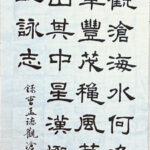 觀滄海水何
草豐茂穐風
出其中星漢
詠志
錄曹孟德觀滄